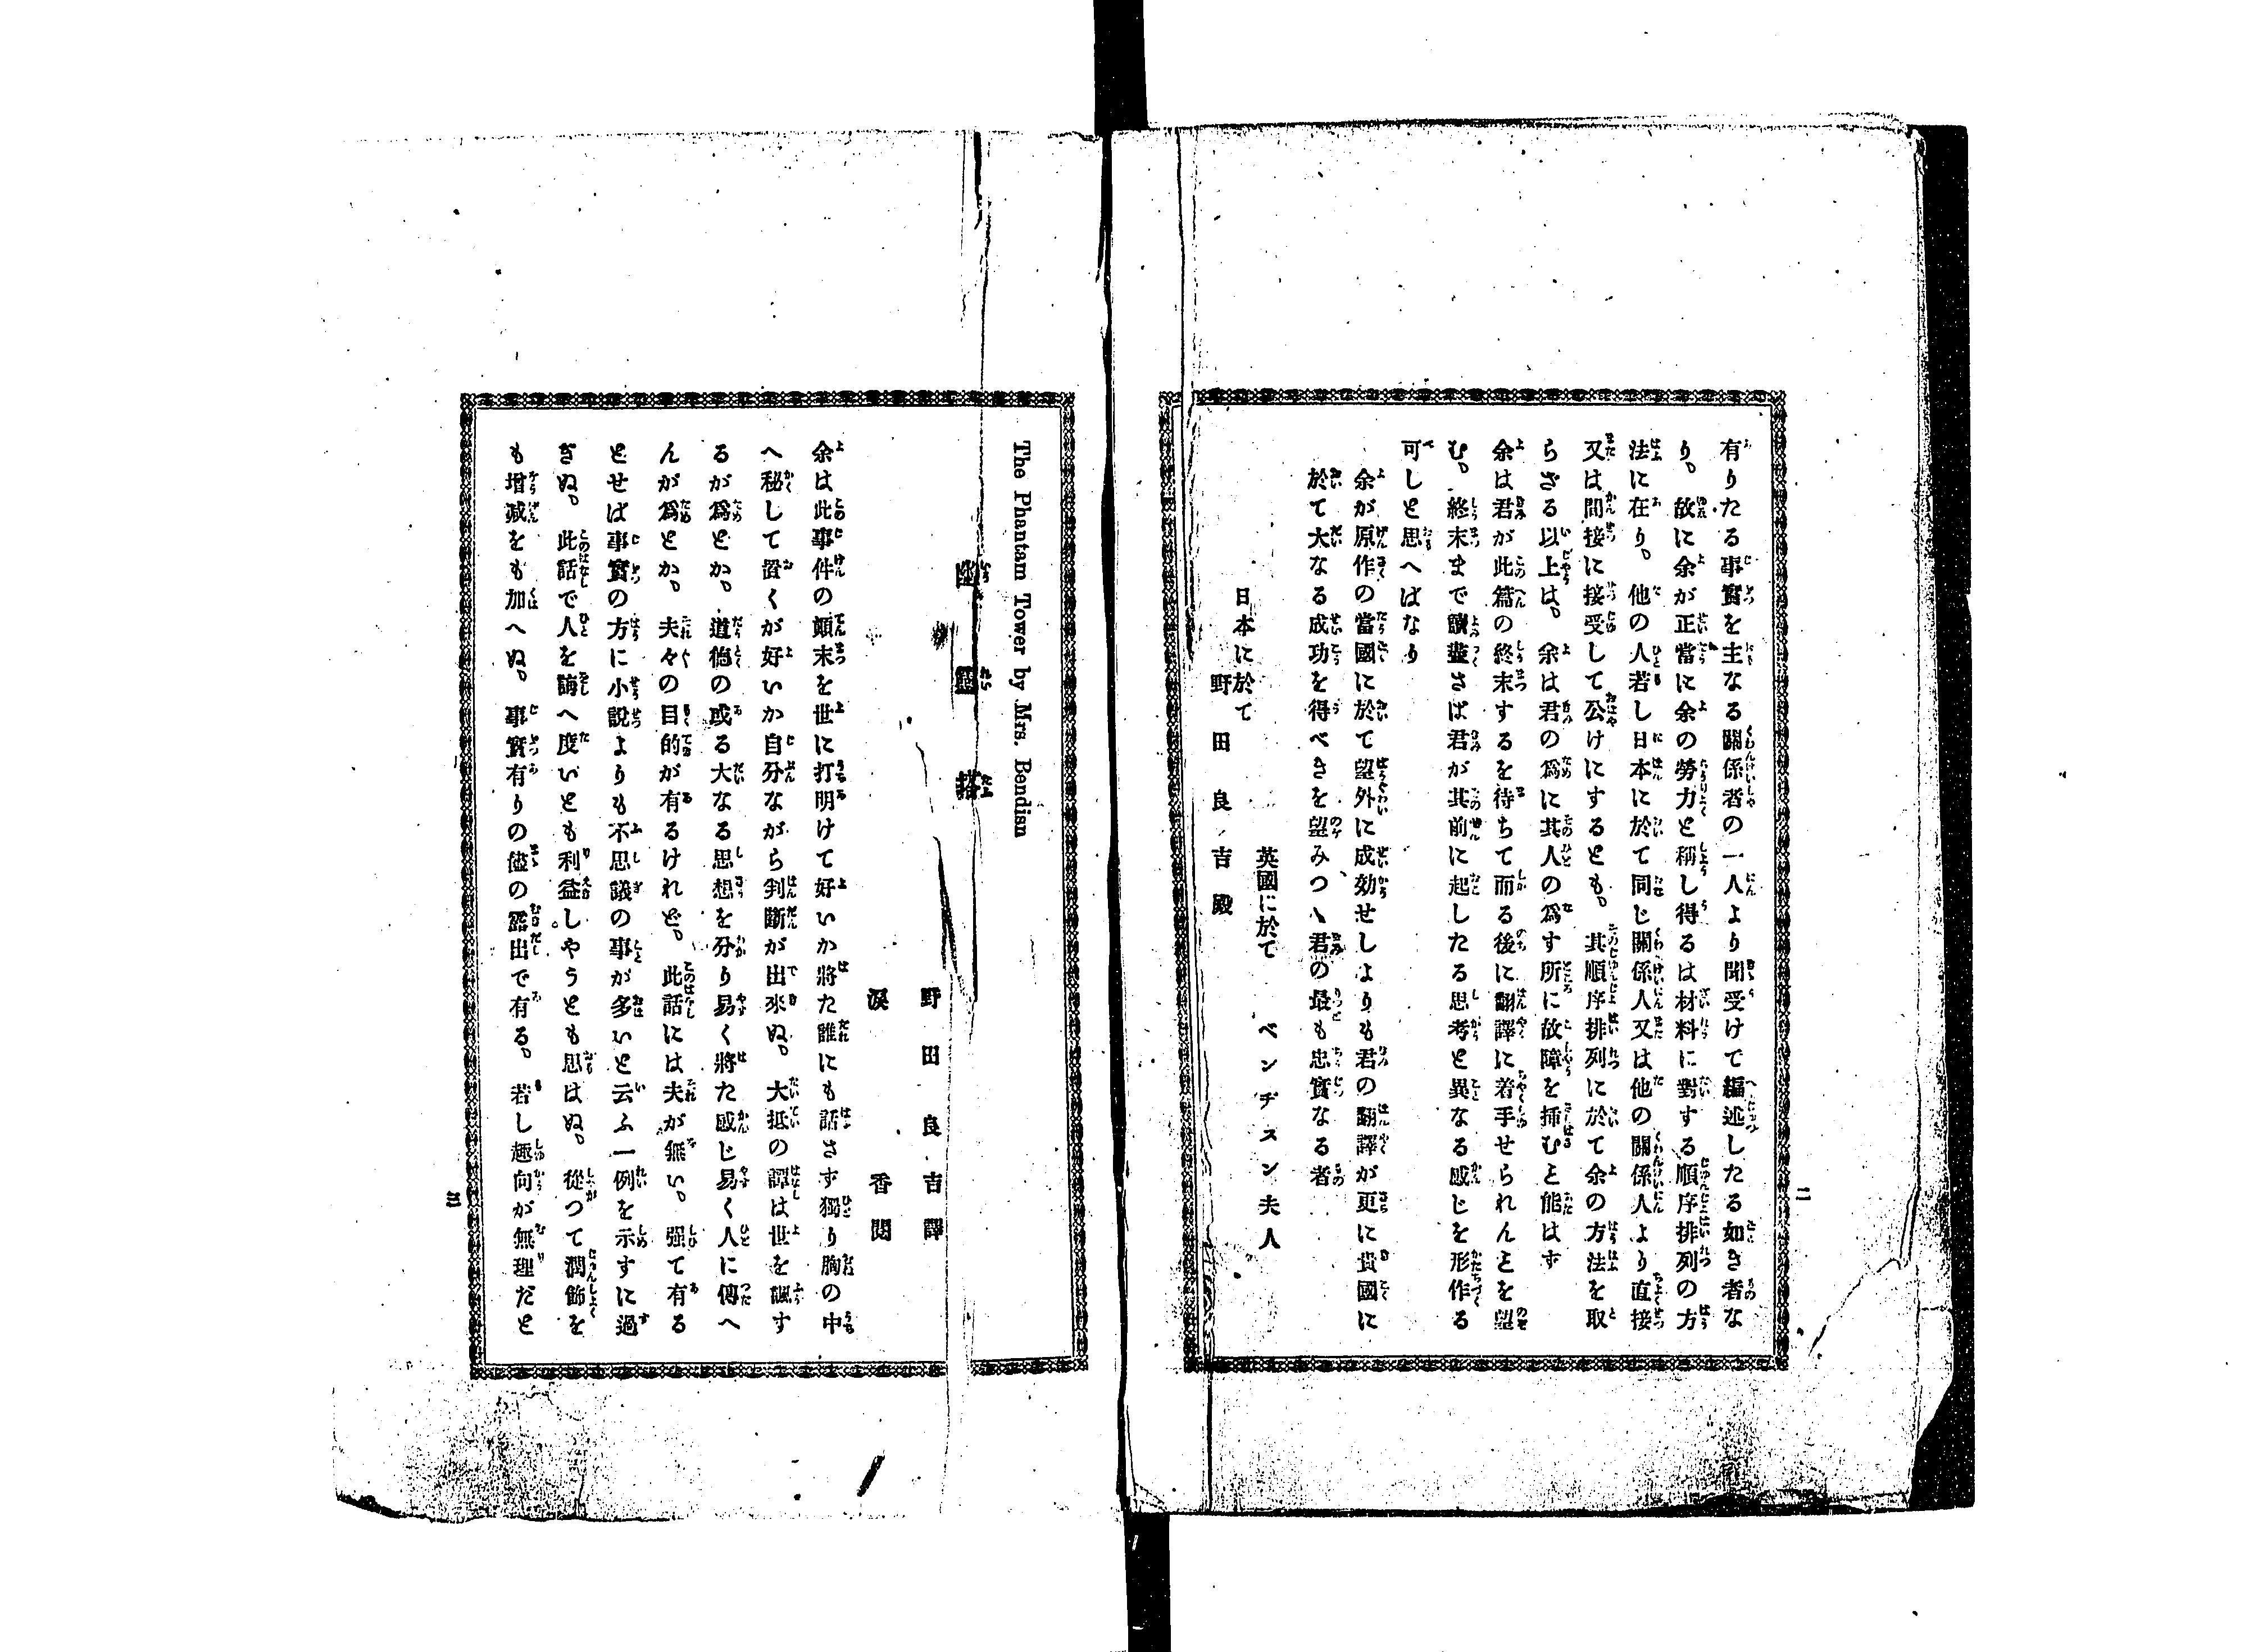 二
有りたる事實を主なる關係者の一人より聞受けて編述したる如き者な
り。故に余が正當に余の勞力と稱し得るは材料に對する順序排列の方
法に在り。他の人若し日本に於て同じ關係人又は他の關係人より直接
又は間接に接受して公けにするとも。其順序排列に於て余の方法を取
らざる以上は。余は君の爲に其人の爲す所に故障を挿むと能はず
余は君が此篇の終末するを待ちて而る後に翻譯に着手せられんとを望
む。終末まで讀盡さば君が其前に起したる思考と異なる感じを形作る
可しと思へばなり
余が原作の當國に於て望外に成効せしよりも君の翻譯が更に貴國に
於て大なる成功を得べきを望みつゝ君の最も忠實なる者
英國に於て ベンヂスン夫人
日本に於て
野田良吉殿
The Phantam Tower by Mrs. Bendisn
幽靈塔
野田良吉譯
涙香閲
余は此事件の顛末を世に打明けて好いか將た誰にも話さず獨り胸の中
へ秘して置くが好いか自分ながら判斷が出來ぬ。大抵の譚は世を諷す
るが爲とか。道德の或る大なる思想を分り易く將た感じ易く人に傳へ
んが爲とか。夫々の目的が有るけれど。此話には夫が無い。強て有る
とせば事實の方に小説よりも不思議の事が多いと云ふ一例を示すに過
ぎぬ。此話で人を誨へ度いとも利益しやうとも思はぬ。從つて潤飾を
も増減をも加へぬ。事實有りの儘の露出で有る。若し趣向が無理だと
三